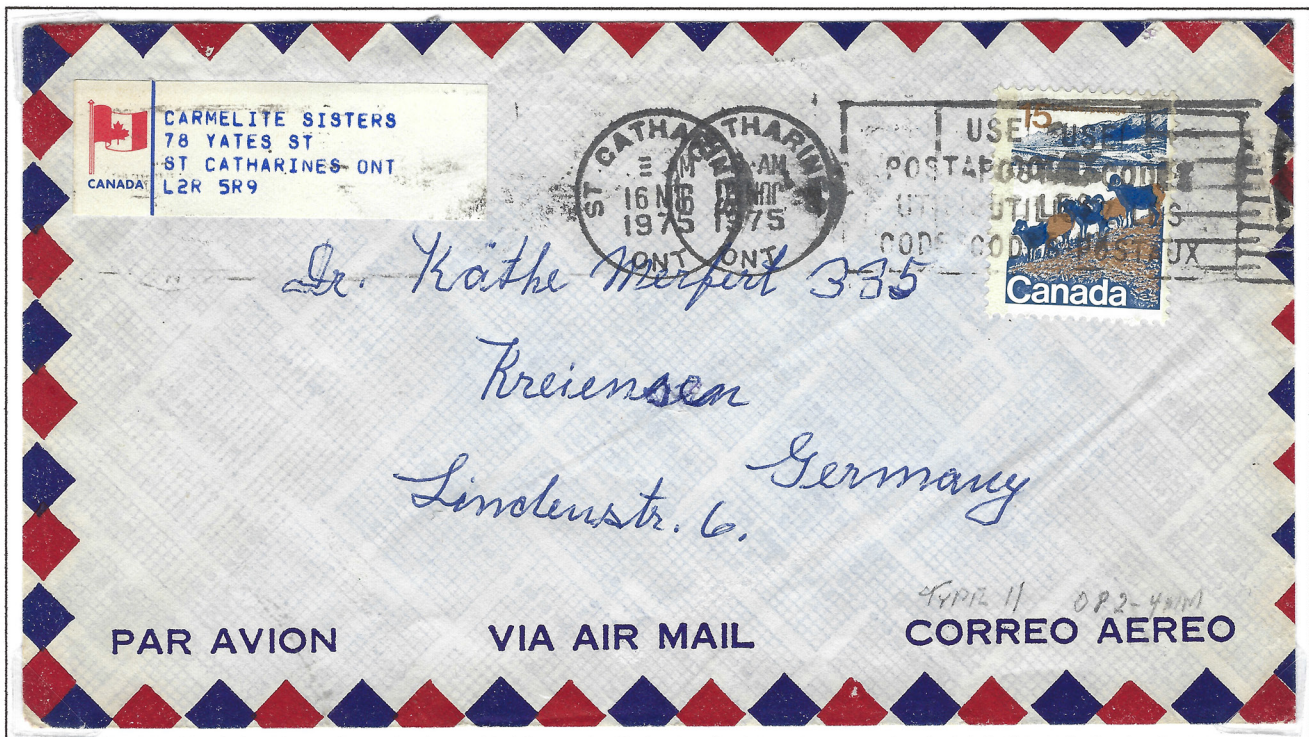 CARMELITE SISTERS
78 YATES ST
ST CATHARINES ONT
L2R 5R9
CANADA
ST CATHARINES
AM
16
1975
ONT
AM
1975
ONT
USE
POSTAL CODES
UTILISEZ LES
CODES POSTAUX
15
Canada
Dr. Käthe Merfert 335
Kreiensen
Germany
Lindenstr. 6.
TYPE II OP2-4MM
PAR AVION VIA AIR MAIL CORREO AEREO